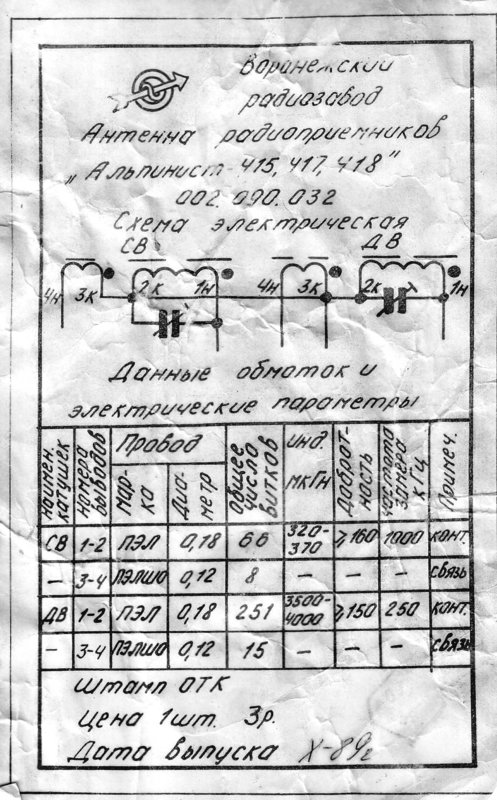 Воронежский
радиозавод
Антенна радиоприемников
„Альпинист-415, 417, 418"
002.090.032
Схема электрическая
СВ ДВ
4н 3к 2к 1н 4н 3к 2к 1н
Данные обмоток и
электрические параметры
Наимен. катушек | Номера выводов | Провод | Общее число витков | Инд. мкГн | Добротность | Частота замера кГц | Примеч.
Марка | Диаметр
СВ 1-2 ПЭЛ 0,18 66 320-370 ≥160 1000 конт.
— 3-4 ПЭЛШО 0,12 8 — — — связь
ДВ 1-2 ПЭЛ 0,18 251 3500-4000 ≥150 250 конт.
— 3-4 ПЭЛШО 0,12 15 — — — связь
Штамп ОТК
Цена 1шт. 3р.
Дата выпуска X-89г